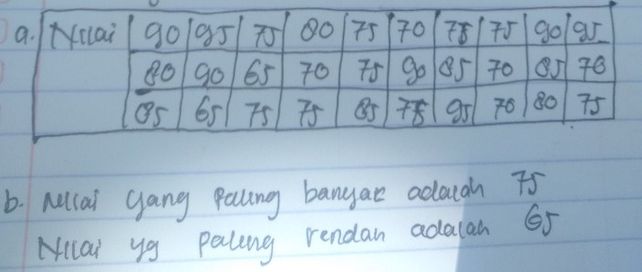 a. Nilai 90 95 75 80 75 70 75 75 90 95
80 90 65 70 75 90 85 70 85 70
85 65 75 75 85 75 95 70 80 75
b. Nilai yang paling banyak adalah 75
Nilai yg paling rendah adalah 65